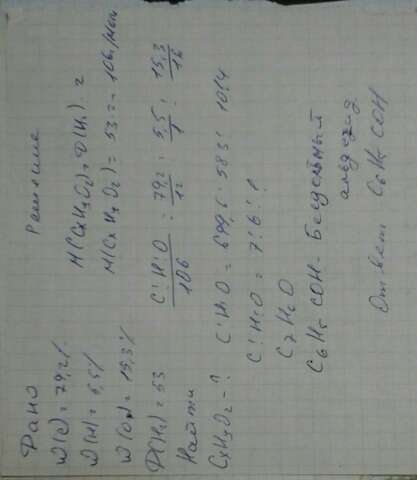 Дано
W(C) = 79,2%
W(H) = 5,5%
W(O) = 15,3%
D(H₂) = 53
Найти
CxHyOz - ?
Решение
M(CxHyOz) = D(H₂) · 2
M(CxHyOz) = 53 = 106 г/моль
C:H:O/106 = 79,2/12 : 5,5/1 : 15,3/16
C:H:O = 699,6 : 583 : 101,4
C:H:O = 7:6:1
C₇H₆O
C₆H₅COH - Бензойный
альдегид
Ответ C₆H₅COH